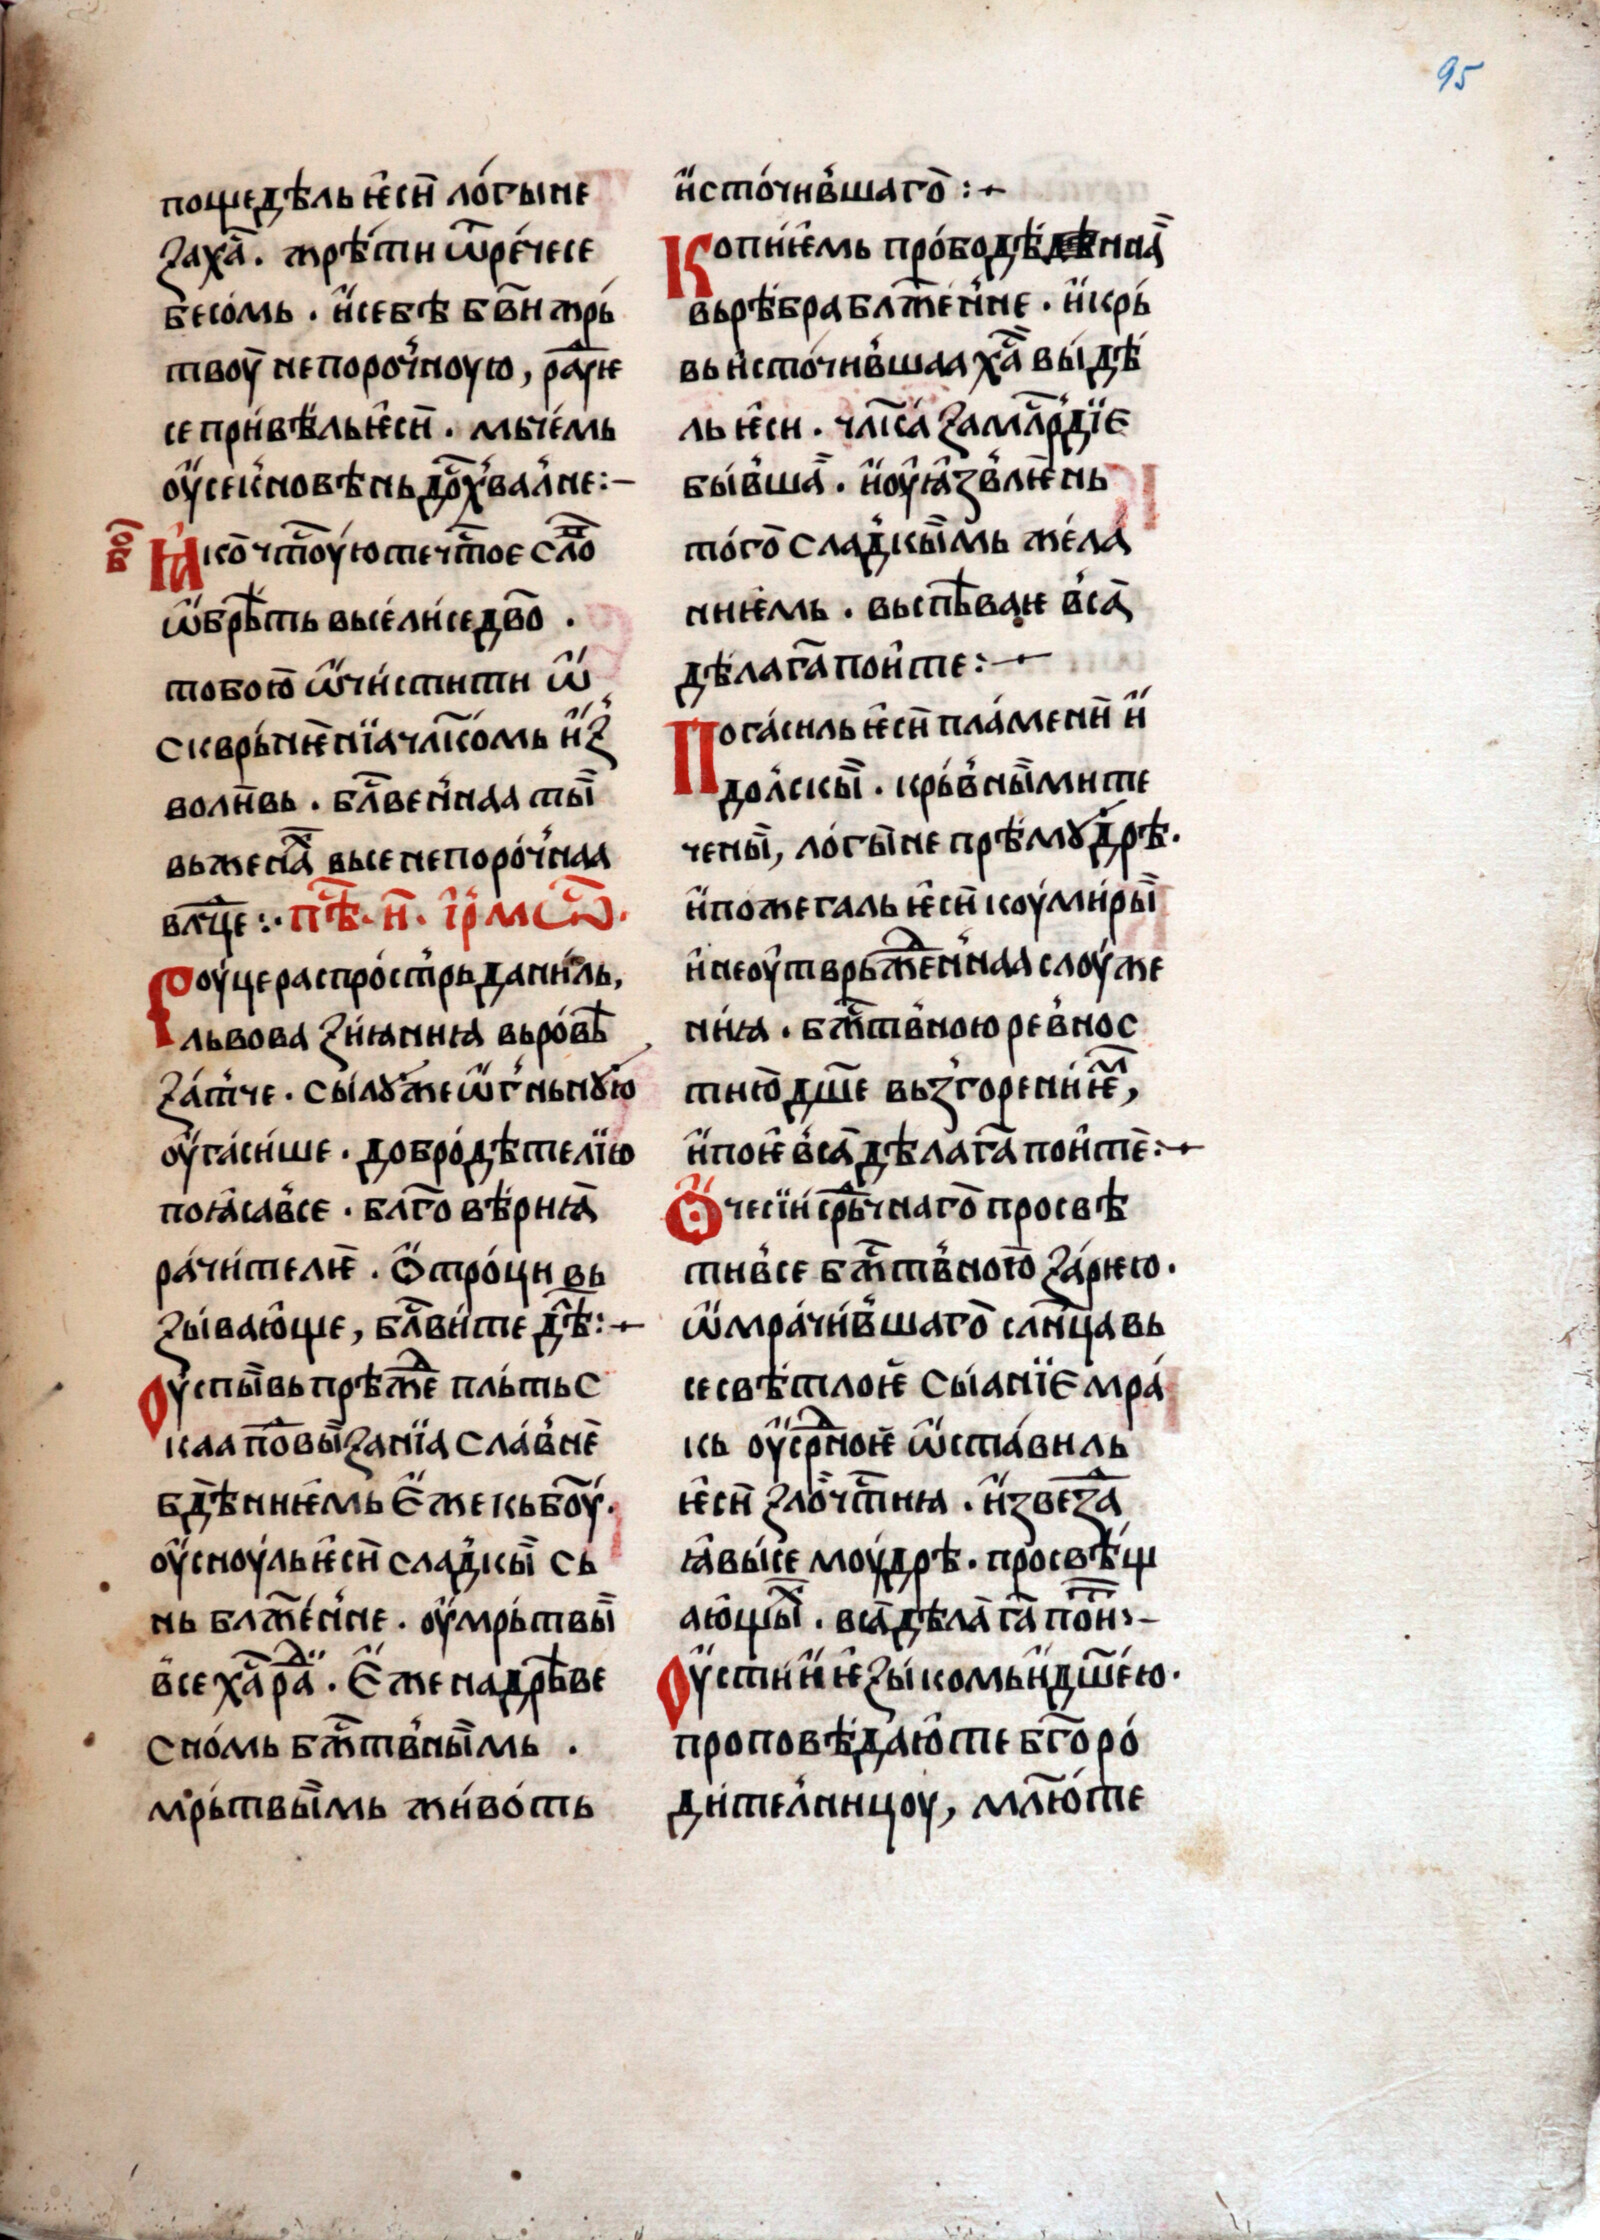 95
пощедѣль ѥ҆сѝ ло́гыне
заха҃. жрѣ́ти ѿре́чесе
бесо́мь. и҆себѣ б҃ви жрь́
твоу̀ непоро́чноую, ра́ꙋѥ
се приве́льѥ҆сѝ. мьче́мь
оу҆сѣкнове́нь дх҃охва́лне:-
б҃о
Ꙗ҆ко̀ чⷭ҇тоу́ю те чⷭ҇тое сло́во
ѡ҆брѣ́ть вьсели́се дво̀.
тобою̀ ѡ҆чи́стити ѿ
скврь́нѥнїа чл҃ко́мь и҆з
воли́вь. бл҃ве́ннаа ты̀
вьжена́х вьсенепоро́чнаа
влⷣце:. пѣⷭ. и҃. і҆рмѡⷭ.
Роуцераспро́стрь дани́ль,
львова зи́ꙗниꙗ вьро́вѣ
за́тче. сы́лꙋже ѡ҆́гньнꙋю
оу҆га́сише. добродѣ́телїю
поꙗ́савсе. бл҃говѣ́рниꙗ
рачи́телѥ. Ѻ҆́троци вь
зыва́юще, бл҃ви́те дѣ:-
Оуспы́вь прѣ́жⷣе пль́тьс
каа повы́занїа сла́вне
бдѣ́нниѥмь Є҆́же кь бо҃у́.
оу҆сноу́ль ѥ҆сѝ сла́дкы сь
нь блаже́нне. оу҆мрь́твы
все ха̀ ра́ди. Є҆́же надрѣ́ве
сно́мь бжⷭ҇тв́ны́мь.
мрь́твы́мь живо́ть
и҆сто́чившаго̀:-
Копи́ѥмь про́бодѣ́ннаа
вьрѣ́бра блаже́нне. и҆крь́
вь и҆сто́чившаа ха̀ вы́дѣ
ль ѥ҆сѝ. чл҃ка́ за млрⷣїе
бы́вша. и҆оу҆ꙗ́звлѥнь
того̀ сла́дкы́мь жела́
ниѥмь. вьспѣ́ваѥ вса̀
дѣ́ла га҃ по́ите:-
Погаси́ль ѥ҆сѝ пла́мени и҆
до́лскы. крь́вны́мите
чены̀, ло́гыне прѣмꙋ́дрѣ.
и҆пожегаль ѥ҆сѝ коуми́ры
и҆неоу҆тврьже́ннаа слоуже
ниꙗ. бжⷭ҇твною рев́нос
тию̀ дш҃е вьзгорениѥ́мь,
и҆поѥ̀ вса̀ дѣ́ла га҃ по́ите:-
Ѻ҆чесїи срⷣьчнаго̀ просвѣ
тивсе бжⷭ҇твною̀ за́рѥю.
ѡ҆мрачи́вшаго̀ сл҃нца вь
сесвѣ́тлоѥ сы́анїе мра́
кь оу҆срⷣноѥ ѡ҆ста́виль
ѥ҆сѝ злочⷭ҇тиꙗ. и҆звезда
ꙗ҆вы́се моу́дрѣ. просвѣ́щ
аю҆щы́. вса̀ дѣ́ла га҃ по́и:-
Оу҆сти и҆ ѥ҆зы́комь и҆дш҃е́ю.
проповѣ́даю҆те бг҃оро́
ди́телницоу, мл҃ю́те